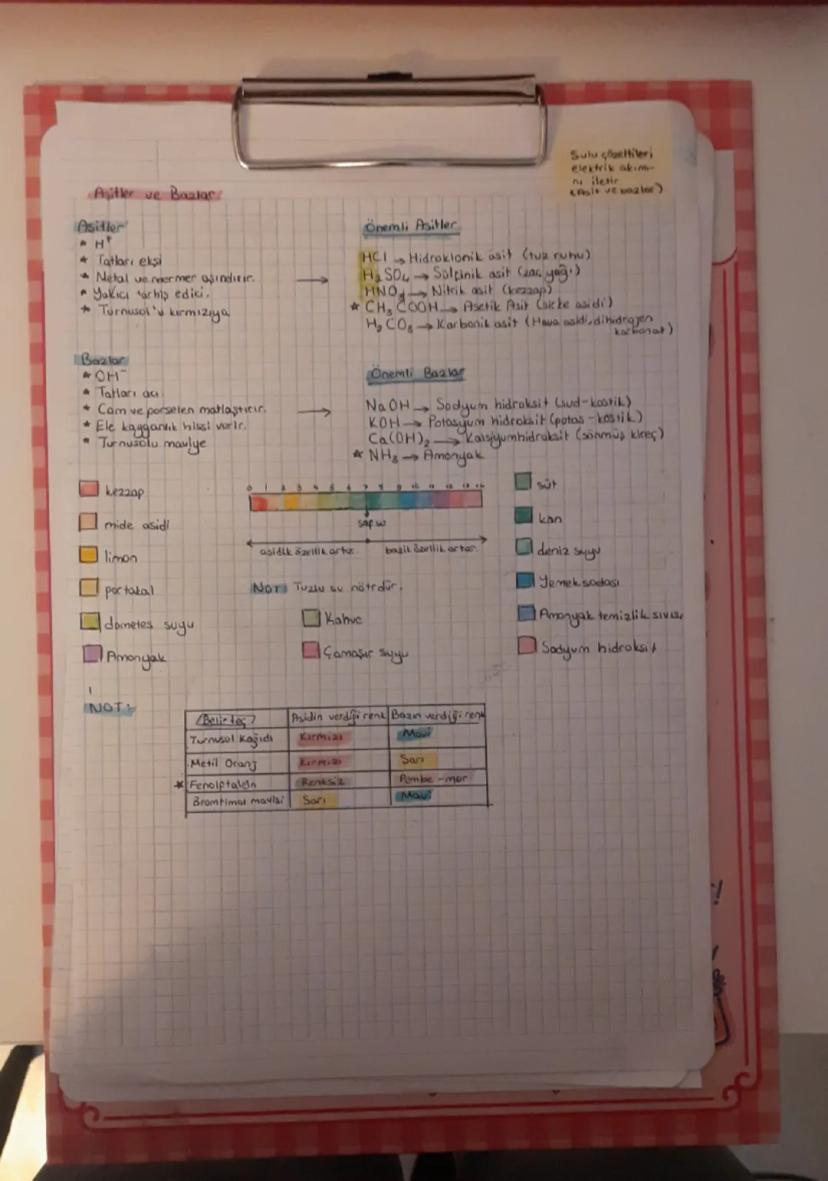 Sulu çözeltileri
elektrik akımı-
nı iletir
(Asit ve bazlar)
Asitler ve Bazlar
Asitler
* H⁺
* Tatları ekşi
* Metal ve mermer aşındırır. →
* Yakıcı tahriş edici.
* Turnusol'u kırmızıya
Önemli Asitler
HCl → Hidroklorik asit (tuz ruhu)
H₂SO₄ → Sülfirik asit (zaç yağı)
HNO₃ → Nitrik asit (kezzap)
* CH₃COOH → Asetik Asit (sirke asidi)
H₂CO₃ → Karbonik asit (Hava asidi, dihidrojen
karbonat)
Bazlar
* OH⁻
* Tatları acı
* Cam ve porselen matlaştırır. →
* Ele kayganlık hissi verir.
* Turnusolu maviye
Önemli Bazlar
NaOH → Sodyum hidroksit (sud-kostik)
KOH → Potasyum hidroksit (potas-kostik)
Ca(OH)₂ → Kalsiyumhidroksit (sönmüş kireç)
* NH₃ → Amonyak
kezzap
mide asidi
limon
portakal
domates suyu
Amonyak
0 1 2 3 4 5 6 7 8 9 10 11 12 13 14
saf su
asidik özellik artar. bazik özellik artar.
NOT: Tuzlu su nötrdür.
Kahve
Çamaşır suyu
süt
kan
deniz suyu
Yemek sodası
Amonyak temizlik sıvısı
Sodyum hidroksit
NOT:
(Belirteç) Asidin verdiği renk Bazın verdiği renk
Turnusol Kağıdı Kırmızı Mavi
Metil Oranj Kırmızı Sarı
* Fenolftalein Renksiz Pembe-mor
Bromtimol mavisi Sarı Mavi